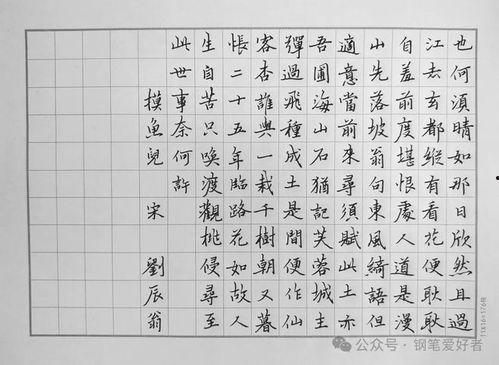 也何須晴如那日欣然且過
江去玄都縱有看花便耿耿
自羞前度堪恨處人道是漫
山先落坡翁句東風綺語但
適意當前來尋須賦此土亦
吾圃海山石猶記芙蓉城主
彈過飛種成土是間便作仙
客杏誰與一栽千樹朝又暮
悵二十五年臨路花如故人
生自苦只喚渡觀桃侵尋至
此世事奈何許
摸魚兒 宋 劉辰翁
11X16=176格
公众号·钢笔爱好者